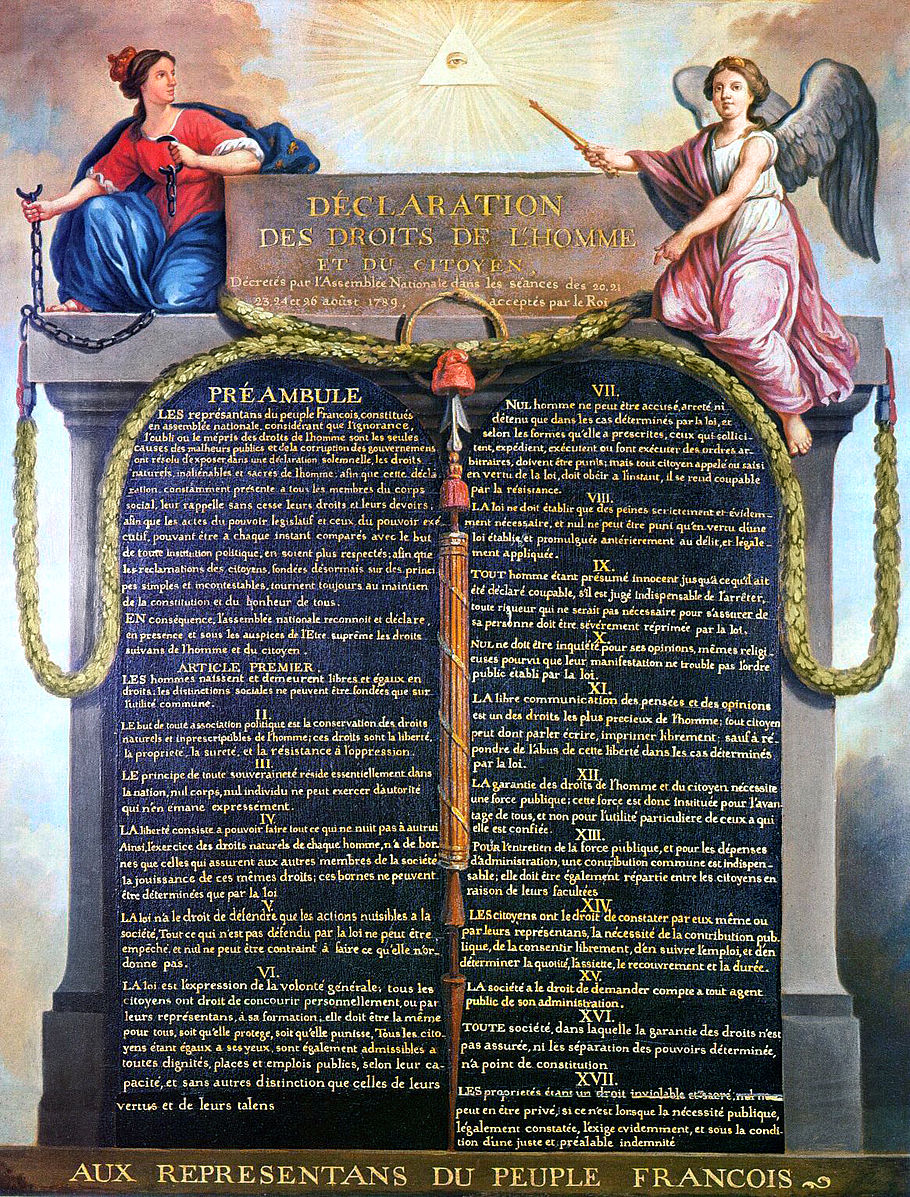 DÉCLARATION
DES DROITS DE L'HOMME
ET DU CITOYEN,
Décretés par l'Assemblée Nationale dans les séances des 20. 21
23. 24 et 26 aoûst 1789, acceptés par le Roi
PRÉAMBULE
LES représantans du peuple François, constitués
en assemblée nationale, considérant que l'ignorance,
l'oubli ou le mépris des droits de l'homme sont les seules
causes des malheurs publics et de la corruption des gouvernemens
ont résolu d'exposer dans une déclaration solemnelle, les droits
naturels, inaliénables et sacrés de l'homme; afin que cette décla
ration, constamment présente a tous les membres du corps
social, leur rappelle sans cesse leurs droits et leurs devoirs,
afin que les actes du pouvoir législatif et ceux du pouvoir exé
cutif, pouvant être a chaque instant comparés avec le but
de toute institution politique, en soient plus respectés; afin que
les reclamations des citoyens, fondées désormais sur des princi
pes simples et incontestables, tournent toujours au maintien
de la constitution et du bonheur de tous.
EN conséquence, l'assemblée nationale reconnoit et déclare,
en presence et sous les auspices de l'Etre suprême les droits
suivans de l'homme et du citoyen.
ARTICLE PREMIER.
LES hommes naissent et demeurent libres et égaux en
droits. les distinctions sociales ne peuvent être fondées que sur
l'utilité commune.
II.
LE but de toute association politique est la conservation des droits
naturels et inprescriptibles de l'homme; ces droits sont la liberté,
la propriété, la sureté, et la résistance à l'oppression.
III.
LE principe de toute souveraineté réside essentiellement dans
la nation, nul corps, nul individu ne peut exercer d'autorité
qui n'en émane expressement.
IV.
LA liberté consiste a pouvoir faire tout ce qui ne nuit pas à autrui
Ainsi, l'exercice des droits naturels de chaque homme, n'a de bor-
nes que celles qui assurent aux autres membres de la société
la jouissance de ces mêmes droits; ces bornes ne peuvent
être déterminées que par la loi
V.
LA loi n'a le droit de défendre que les actions nuisibles a la
société, Tout ce qui n'est pas défendu par la loi ne peut être
empêché, et nul ne peut être contraint à faire ce qu'elle n'or-
donne pas.
VI.
LA loi est l'expression de la volonté générale; tous les
citoyens ont droit de concourir personnellement, ou par
leurs représentans, à sa formation; elle doit être la même
pour tous, soit qu'elle protege, soit qu'elle punisse, Tous les cito-
yens étant égaux a ses yeux, sont également admissibles a
toutes dignités, places et emplois publics, selon leur ca-
pacité, et sans autres distinction que celles de leurs
vertus et de leurs talens
VII.
NUL homme ne peut être accusé, arreté ni
détenu que dans les cas déterminés par la loi, et
selon les formes qu'elle a prescrites, ceux qui sollici-
tent, expédient, exécutent ou font exécuter des ordres ar-
bitraires, doivent être punis; mais tout citoyen appelé ou saisi
en vertu de la loi, doit obéir a l'instant, il se rend coupable
par la résistance.
VIII.
LA loi ne doit établir que des peines strictement et évidem-
ment nécessaire, et nul ne peut être puni qu'en vertu d'une
loi établie et promulguée antérierement au délit, et légale-
ment appliquée.
IX.
TOUT homme étant présumé innocent jusqu'a ce qu'il ait
été déclaré coupable, s'il est jugé indispensable de l'arrêter,
toute rigueur qui ne serait pas nécessaire pour s'assurer de
sa personne doit être sévèrement réprimée par la loi.
X.
NUL ne doit être inquiété pour ses opinions, mêmes religi-
euses pourvu que leur manifestation ne trouble pas l'ordre
public établi par la loi.
XI.
LA libre communication des pensées et des opinions
est un des droits les plus precieux de l'homme; tout citoyen
peut dont parler écrire, imprimer librement; sauf a ré-
pondre de l'abus de cette liberté dans les cas déterminés
par la loi.
XII.
LA garantie des droits de l'homme et du citoyen nécessite
une force publique; cette force est donc instituée pour l'avan-
tage de tous, et non pour l'utilité particuliere de ceux a qui
elle est confiée.
XIII.
POUR l'entretien de la force publique, et pour les dépenses
d'administration, une contribution commune est indispen-
sable; elle doit être également répartie entre les citoyens en
raison de leurs facultées
XIV.
LES citoyens ont le droit de constater par eux même ou
par leurs représentans, la nécessité de la contribution pub-
lique, de la consentir librement, d'en suivre l'emploi, et d'en
déterminer la quotité, l'assiette, le recouvrement et la durée.
XV.
LA société a le droit de demander compte a tout agent
public de son administration.
XVI.
TOUTE société, dans laquelle la garantie des droits n'est
pas assurée, ni les séparation des pouvoirs déterminée,
n'a point de constitution
XVII.
LES proprietés étant un droit inviolable et sacré, nul ne
peut en être privé, si ce n'est lorsque la nécessité publique,
légalement constatée, l'exige evidemment, et sous la condi-
tion d'une juste et préalable indemnité
AUX REPRESENTANS DU PEUPLE FRANCOIS